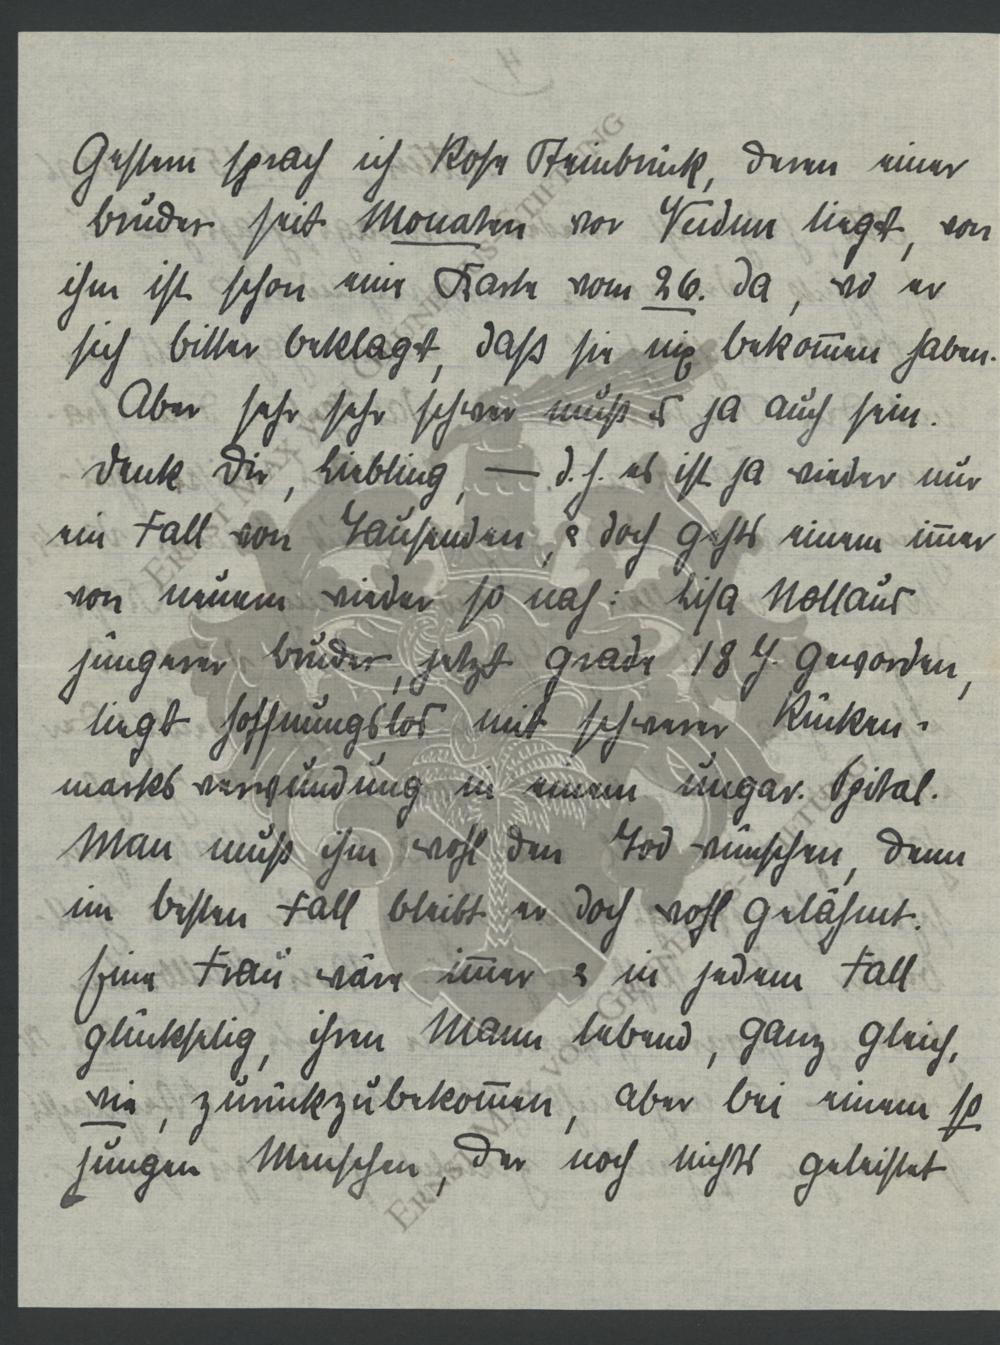 4)
Gestern sprach ich Rose Steinbrück, deren einer
Bruder seit Monaten vor Verdun liegt, von
ihm ist schon eine Karte vom 26. da, wo er
sich bitter beklagt, daß sie nix bekom̅en haben.
Aber sehr sehr schwer muß es ja auch sein.
Denk Dir, Liebling, — d. h. es ist ja wieder nur
ein Fall von Tausenden, & doch gehts einem im̅er
von neuem wieder so nah: Lisa Nollaus
jüngerer Bruder, jetzt grade 18 J. geworden,
liegt hoffnungslos mit schwerer Rücken-
marksverwundung in einem ungar. Spital.
Man muß ihm wohl den Tod wünschen, denn
im besten Fall bleibt er doch wohl gelähmt.
Eine Frau wäre im̅er & in jedem Fall
glückselig, ihren Mann lebend, ganz gleich,
wie, zurückzubekom̅en, aber bei einem so
jungen Menschen, der noch nichts geleistet
ERNST MAX VON GRUNELIUS-STIFTUNG
ERNST MAX VON GRUNELIUS-STIFTUNG